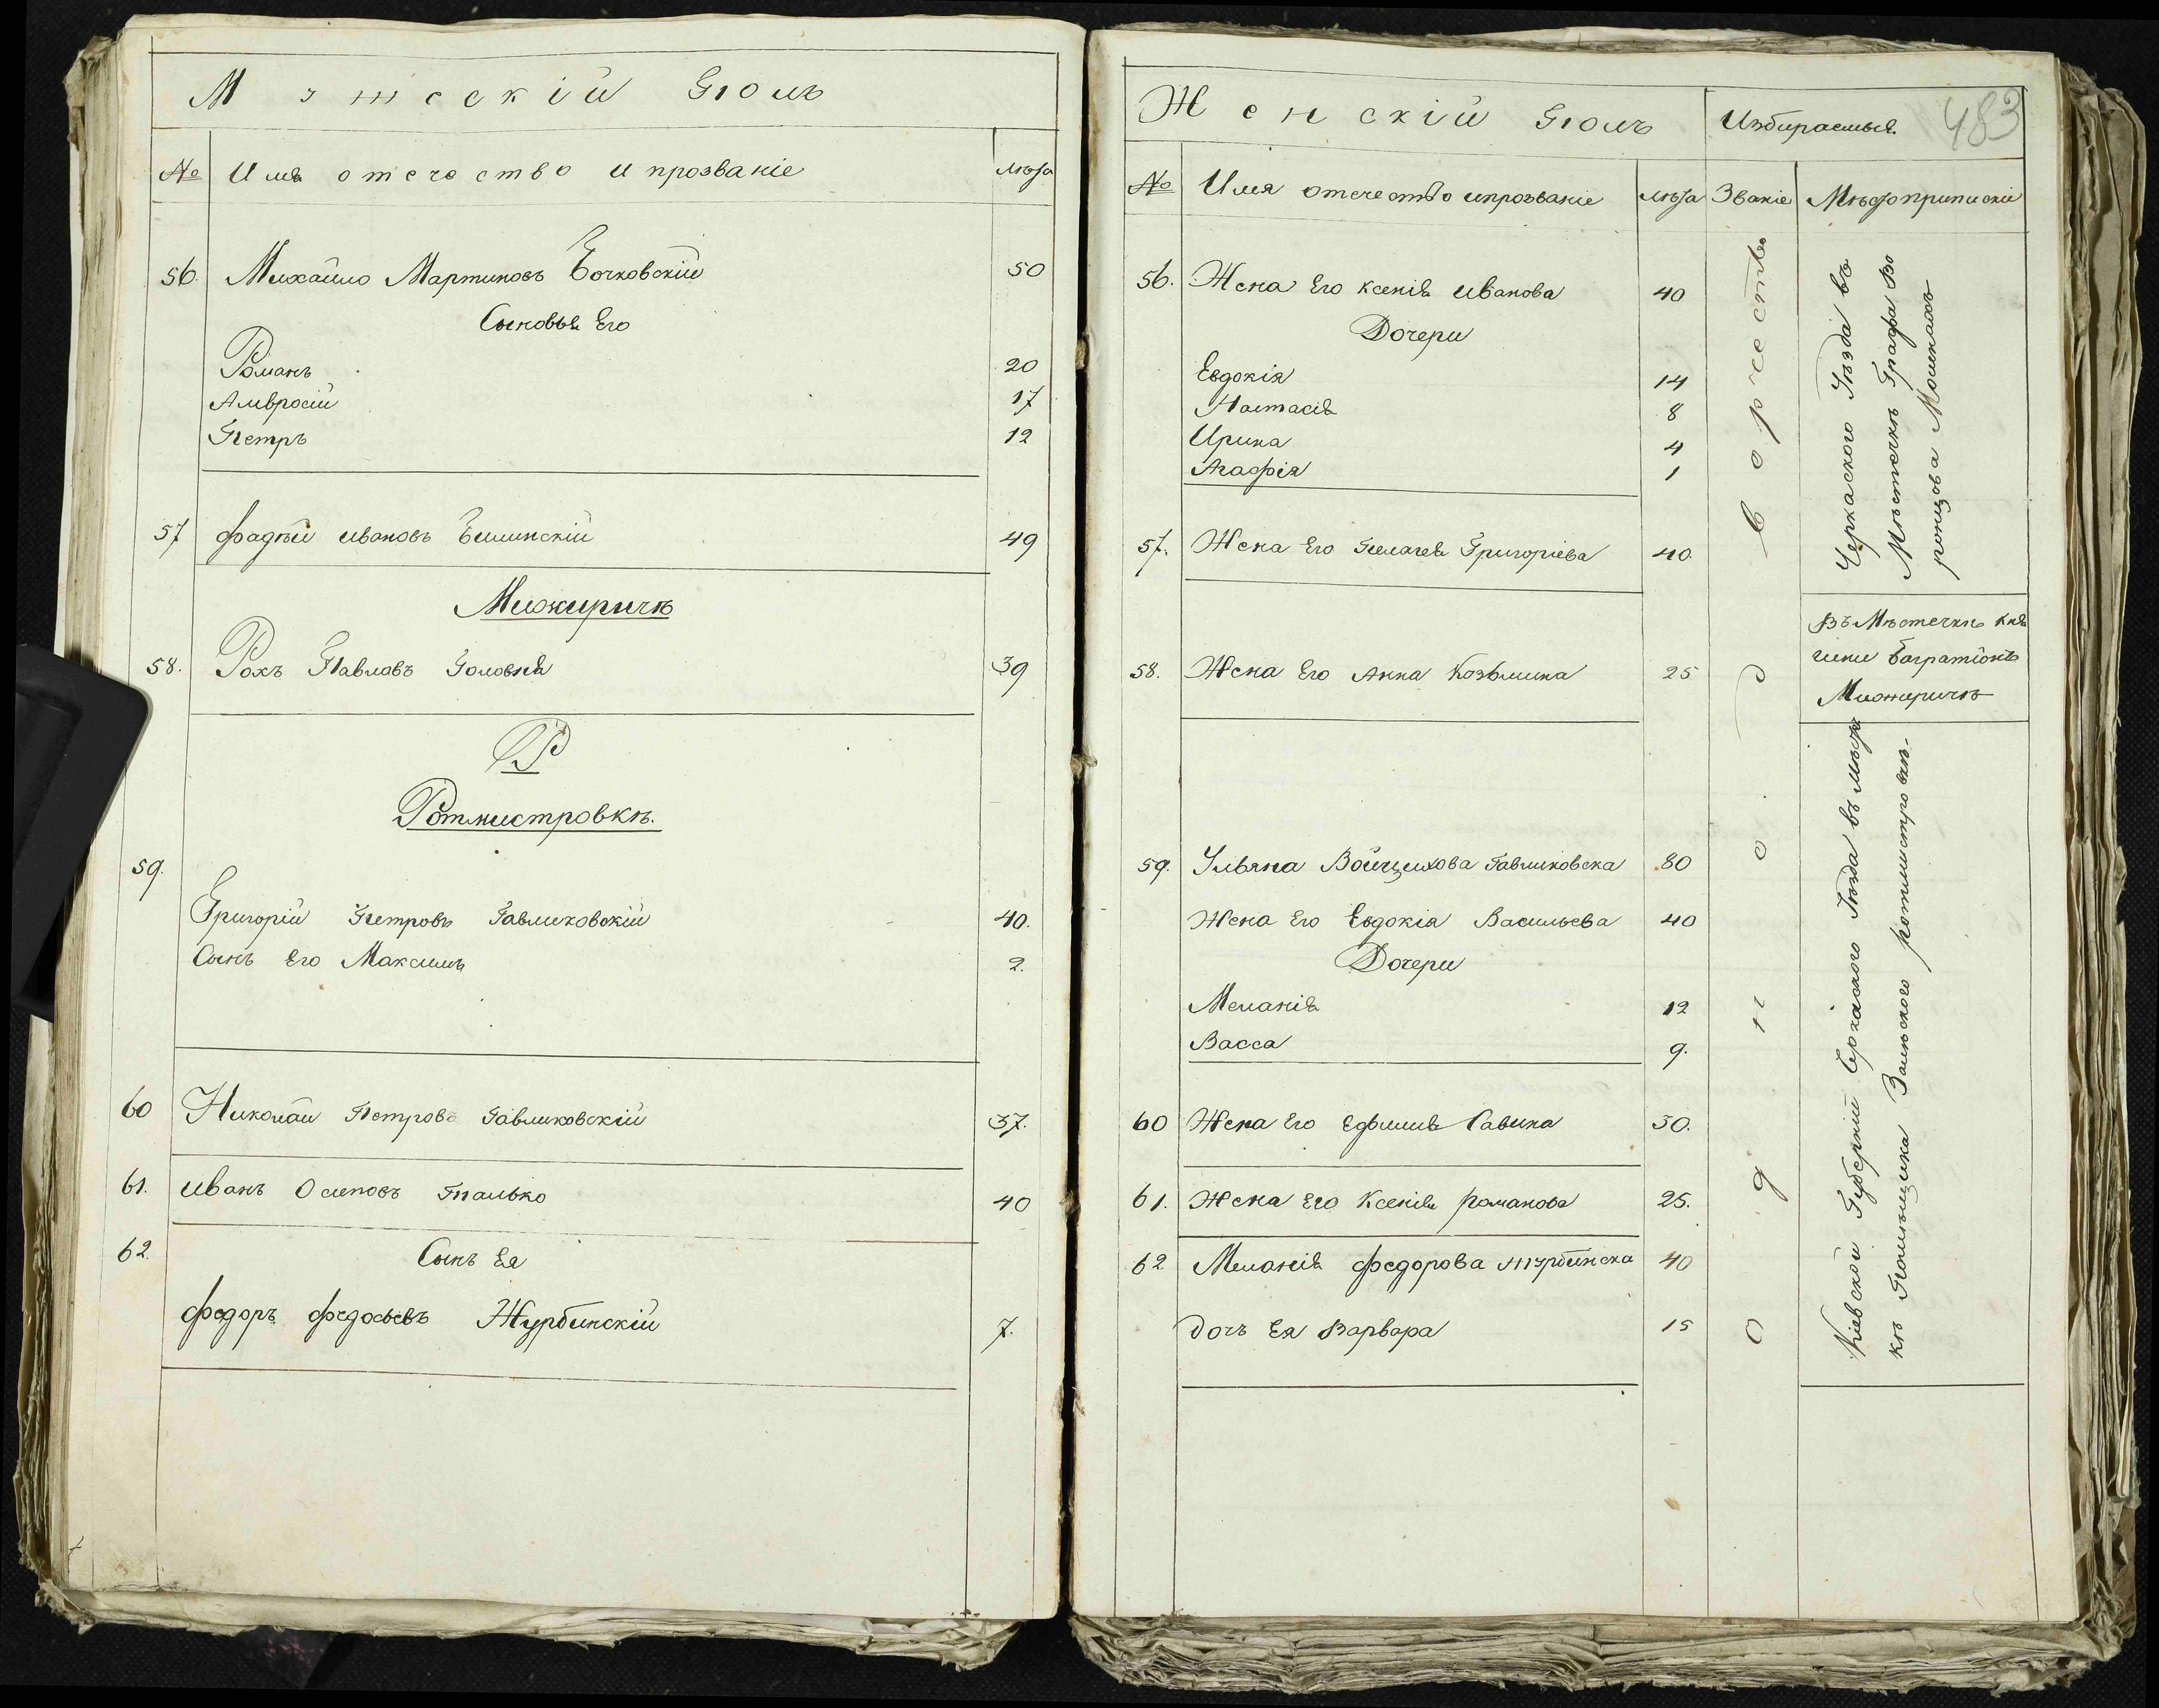 Мужескій Полъ
№ Имя отечество и прозваніе лѣта
56. Михайло Мартиновъ Бочковскій 50
Сыновья Его
Романъ 20
Амвросій 17
Петръ 12
57 Фадѣй Ивановъ Билинскій 49
Мижиричѣ
58. Рохъ Павловъ Головня 39
Р
Ротмистровкѣ.
59.
Григорій Петровъ Гавликовскій 40.
Сынъ Его Максимъ 2.
60 Николай Петровъ Гавликовскій 37.
61. Иванъ Осиповъ 40
62. Сынъ Ея
Федоръ Федосѣевъ Журбинскій 7.
Женскій Полъ Избираемыя. 483
№ Имя отечество ипрозваніе лѣта Званіе Мѣсто приписки
56. Жена Его Ксенія Иванова 40
Дочери
Евдокія 14
Настасія 8
Ирина 4
Агафія 1
57. Жена Его Пелагея Григоріева 40.
58. Жена Его Анна Козьмина 25
59. Ульяна Войцихова Гавликовска 80
Жена Его Евдокія Васильева 40
Дочери
Меланія 12
Васса 9.
60 Жена Его Ефимия Савина 30.
61. Жена Его Ксенія Романова 25.
62. Меланія Федорова Журбинска 40
Дочь Ея Варвара 15
однодворчество
Черкаского Уѣзда въ
Мѣстечкѣ Графа Во
ронцова Мошнахъ
Въ Мѣстечкѣ Кня
гини Багратіонъ
Мижиричѣ
Кіевской Губерніи Черкаского Уѣзда въ мѣстеч
кѣ Помѣщика Залѣского ротмистровкѣ.